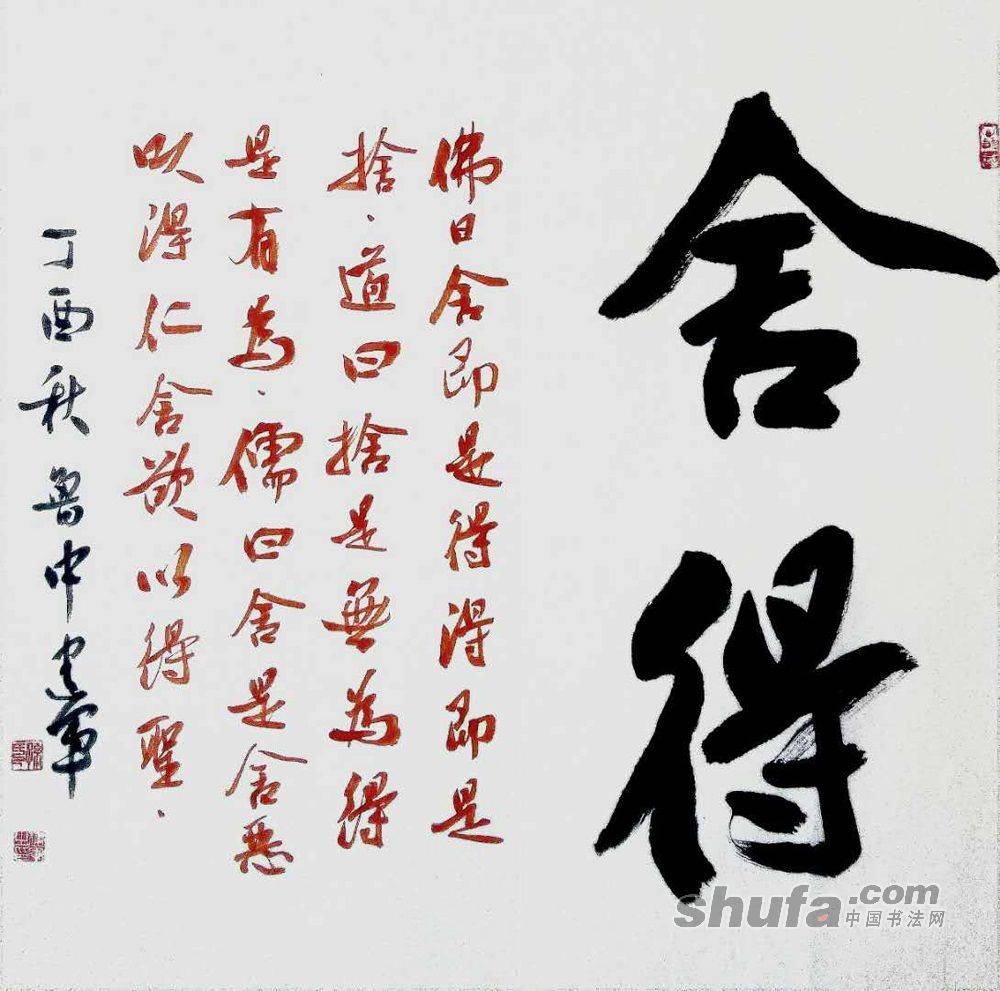 舍得
佛曰舍即是得得即是
捨、道曰捨是無為得
是有為、儒曰舍是舍惡
以得仁舍欲以得聖、
丁酉秋魯中建軍
shufa.com
中国书法网